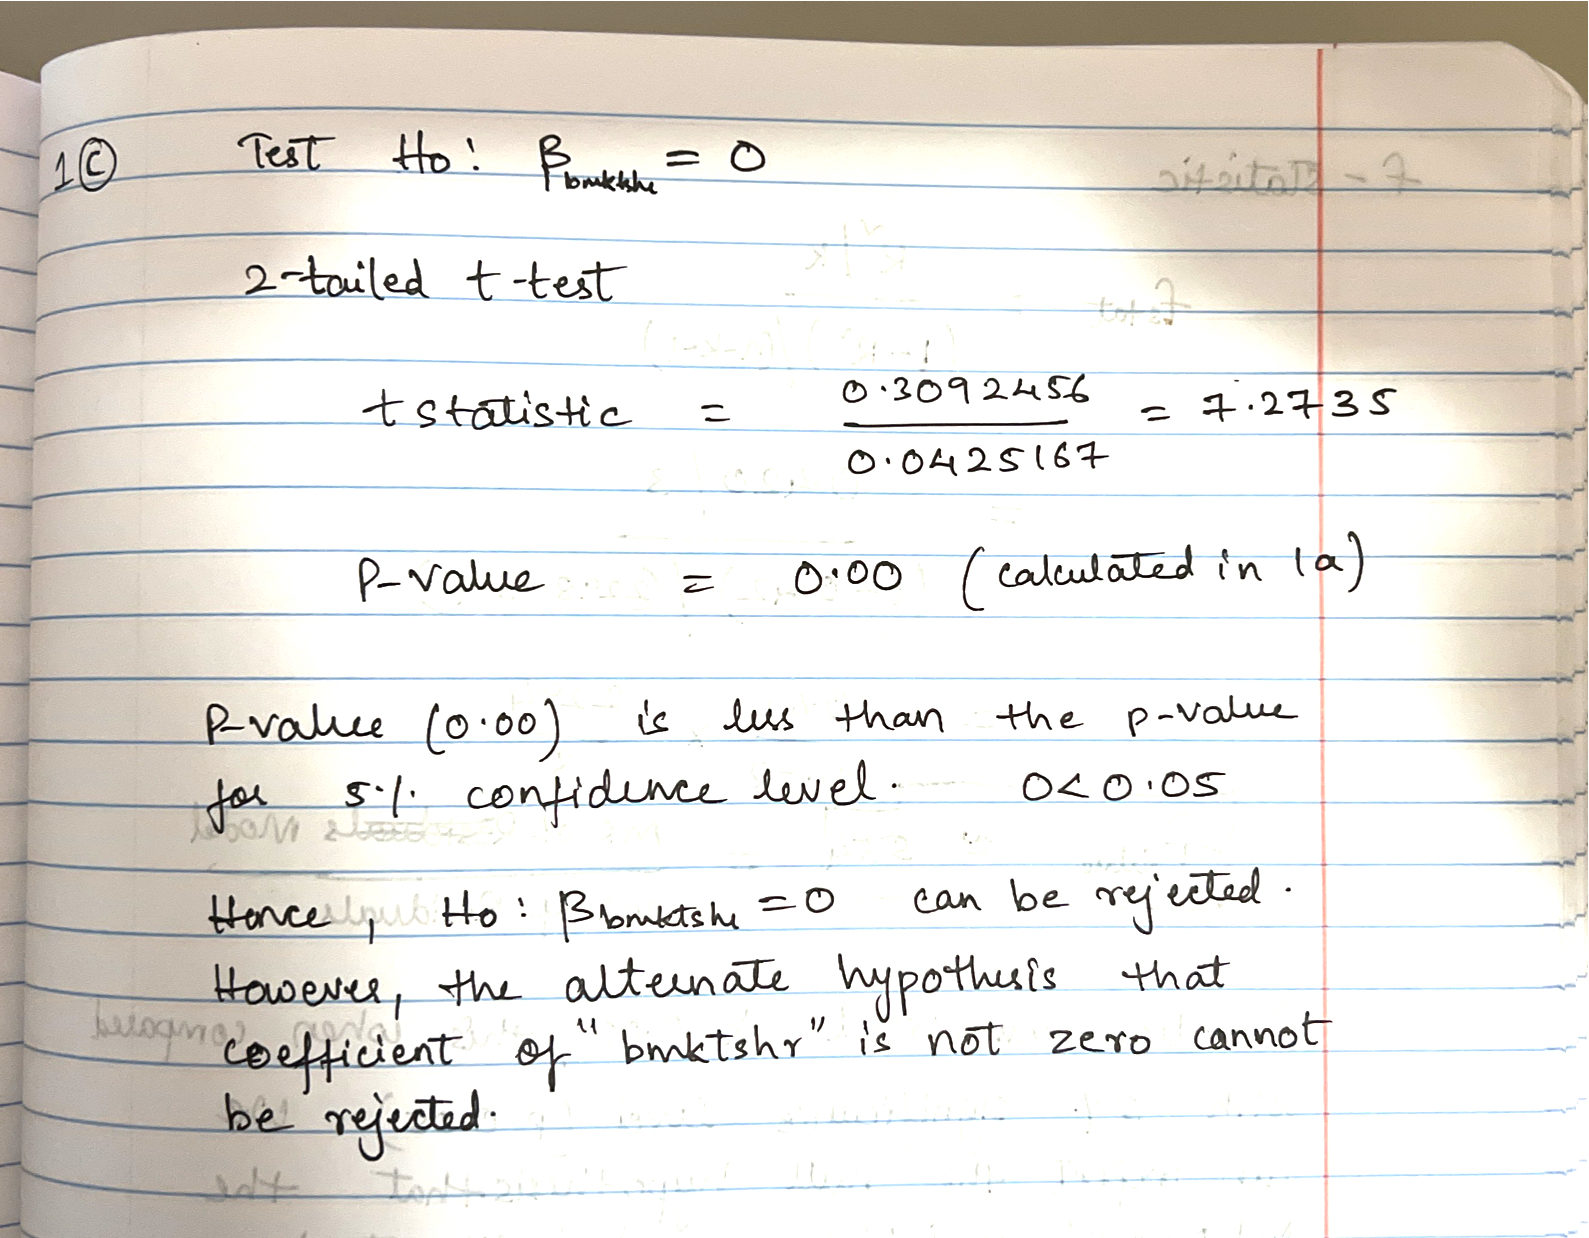 1(c) Test Ho: β bmktshr = 0
2-tailed t-test
t statistic = 0.3092456 / 0.0425167 = 7.2735
P-value = 0.00 (calculated in 1a)
P-value (0.00) is less than the p-value
for 5% confidence level. 0<0.05
Hence, Ho: β bmktshr = 0 can be rejected.
However, the alternate hypothesis that
coefficient of "bmktshr" is not zero cannot
be rejected.